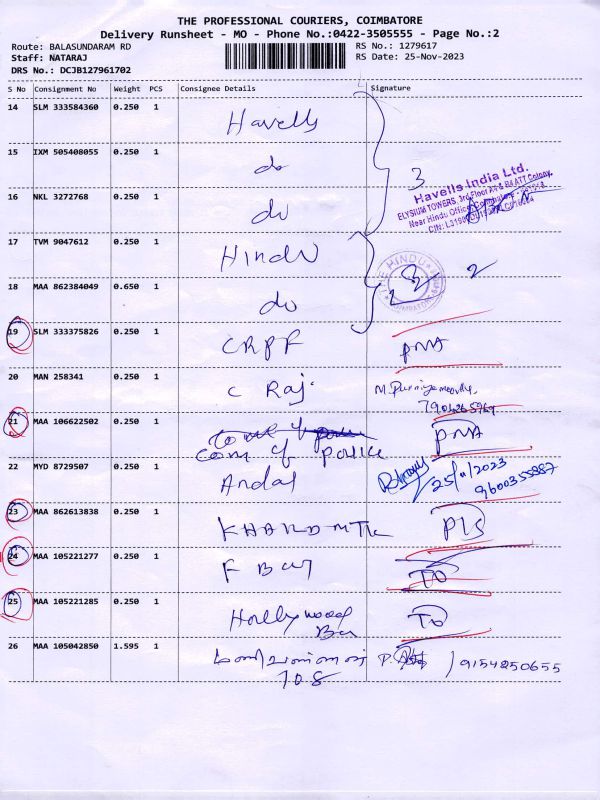 THE PROFESSIONAL COURIERS, COIMBATORE
Delivery Runsheet - MO - Phone No.:0422-3505555 - Page No.:2
Route: BALASUNDARAM RD
RS No.: 1279617
Staff: NATARAJ
RS Date: 25-Nov-2023
DRS No.: DCJB127961702
S No Consignment No Weight PCS Consignee Details Signature
14 SLM 333584360 0.250 1 Havells
15 IXM 505408055 0.250 1 do
3
Havells India Ltd.
ELYSIUM TOWERS, 3rd Floor
Near Hindu Office,
16 NKL 3272768 0.250 1 do
17 TVM 9047612 0.250 1 Hindu
THE HINDU
COIMBATORE
2
18 MAA 862384049 0.650 1 do
19 SLM 333375826 0.250 1 CRPF PNA
20 MAN 258341 0.250 1 C Raj.
21 MAA 106622502 0.250 1 com of police PNA
22 MYD 8729507 0.250 1 Andal 25/11/2023
9600355887
23 MAA 862613838 0.250 1 PLS
24 MAA 105221277 0.250 1 TO
25 MAA 105221285 0.250 1 Hollywood TO
26 MAA 105042850 1.595 1 9154250655
108